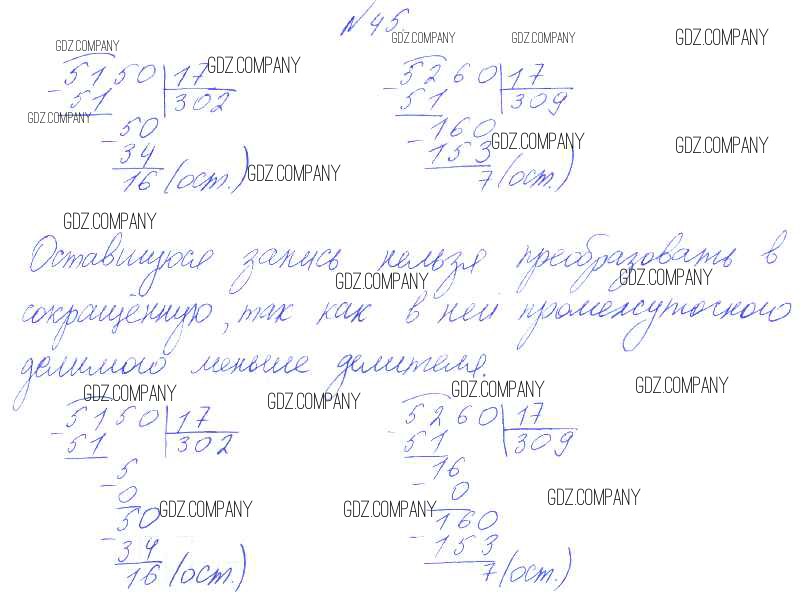 N45.
GDZ.COMPANY GDZ.COMPANY GDZ.COMPANY GDZ.COMPANY
GDZ.COMPANY
5150 | 17 5260 | 17
- 51 302 - 51 309
GDZ.COMPANY
- 50 - 160
GDZ.COMPANY GDZ.COMPANY
34 153
16 (ост.) 7 (ост.)
GDZ.COMPANY
GDZ.COMPANY
Оставшуюся запись нельзя преобразовать в
GDZ.COMPANY GDZ.COMPANY
сокращённую, так как в ней промежуточного
делимого меньше делителя.
GDZ.COMPANY GDZ.COMPANY GDZ.COMPANY GDZ.COMPANY
5150 | 17 5260 | 17
- 51 302 - 51 309
- 5 - 16
0 0
GDZ.COMPANY GDZ.COMPANY GDZ.COMPANY
- 50 - 160
34 153
16 (ост.) 7 (ост.)